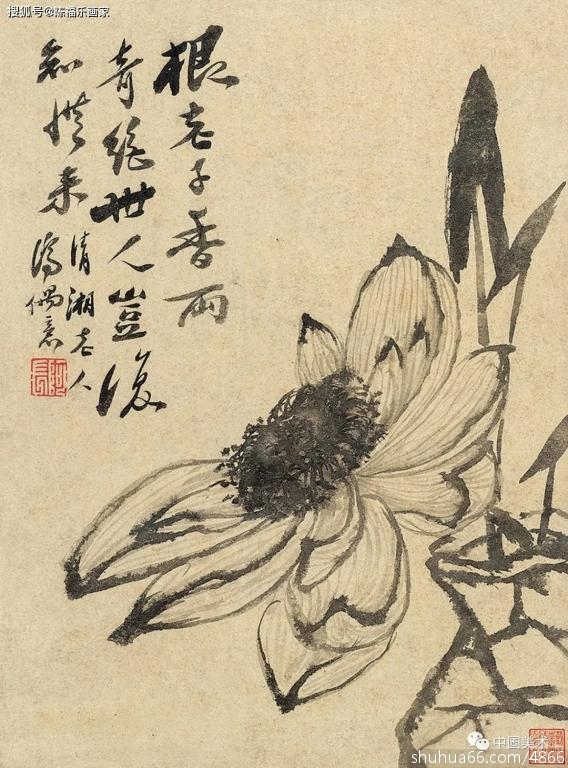 搜狐号@陈福乐画家
根老子香兩
奇絕世人豈復
知来
清湘老人
濟偶意
阿長
中国美术
shuhua66.com/4866